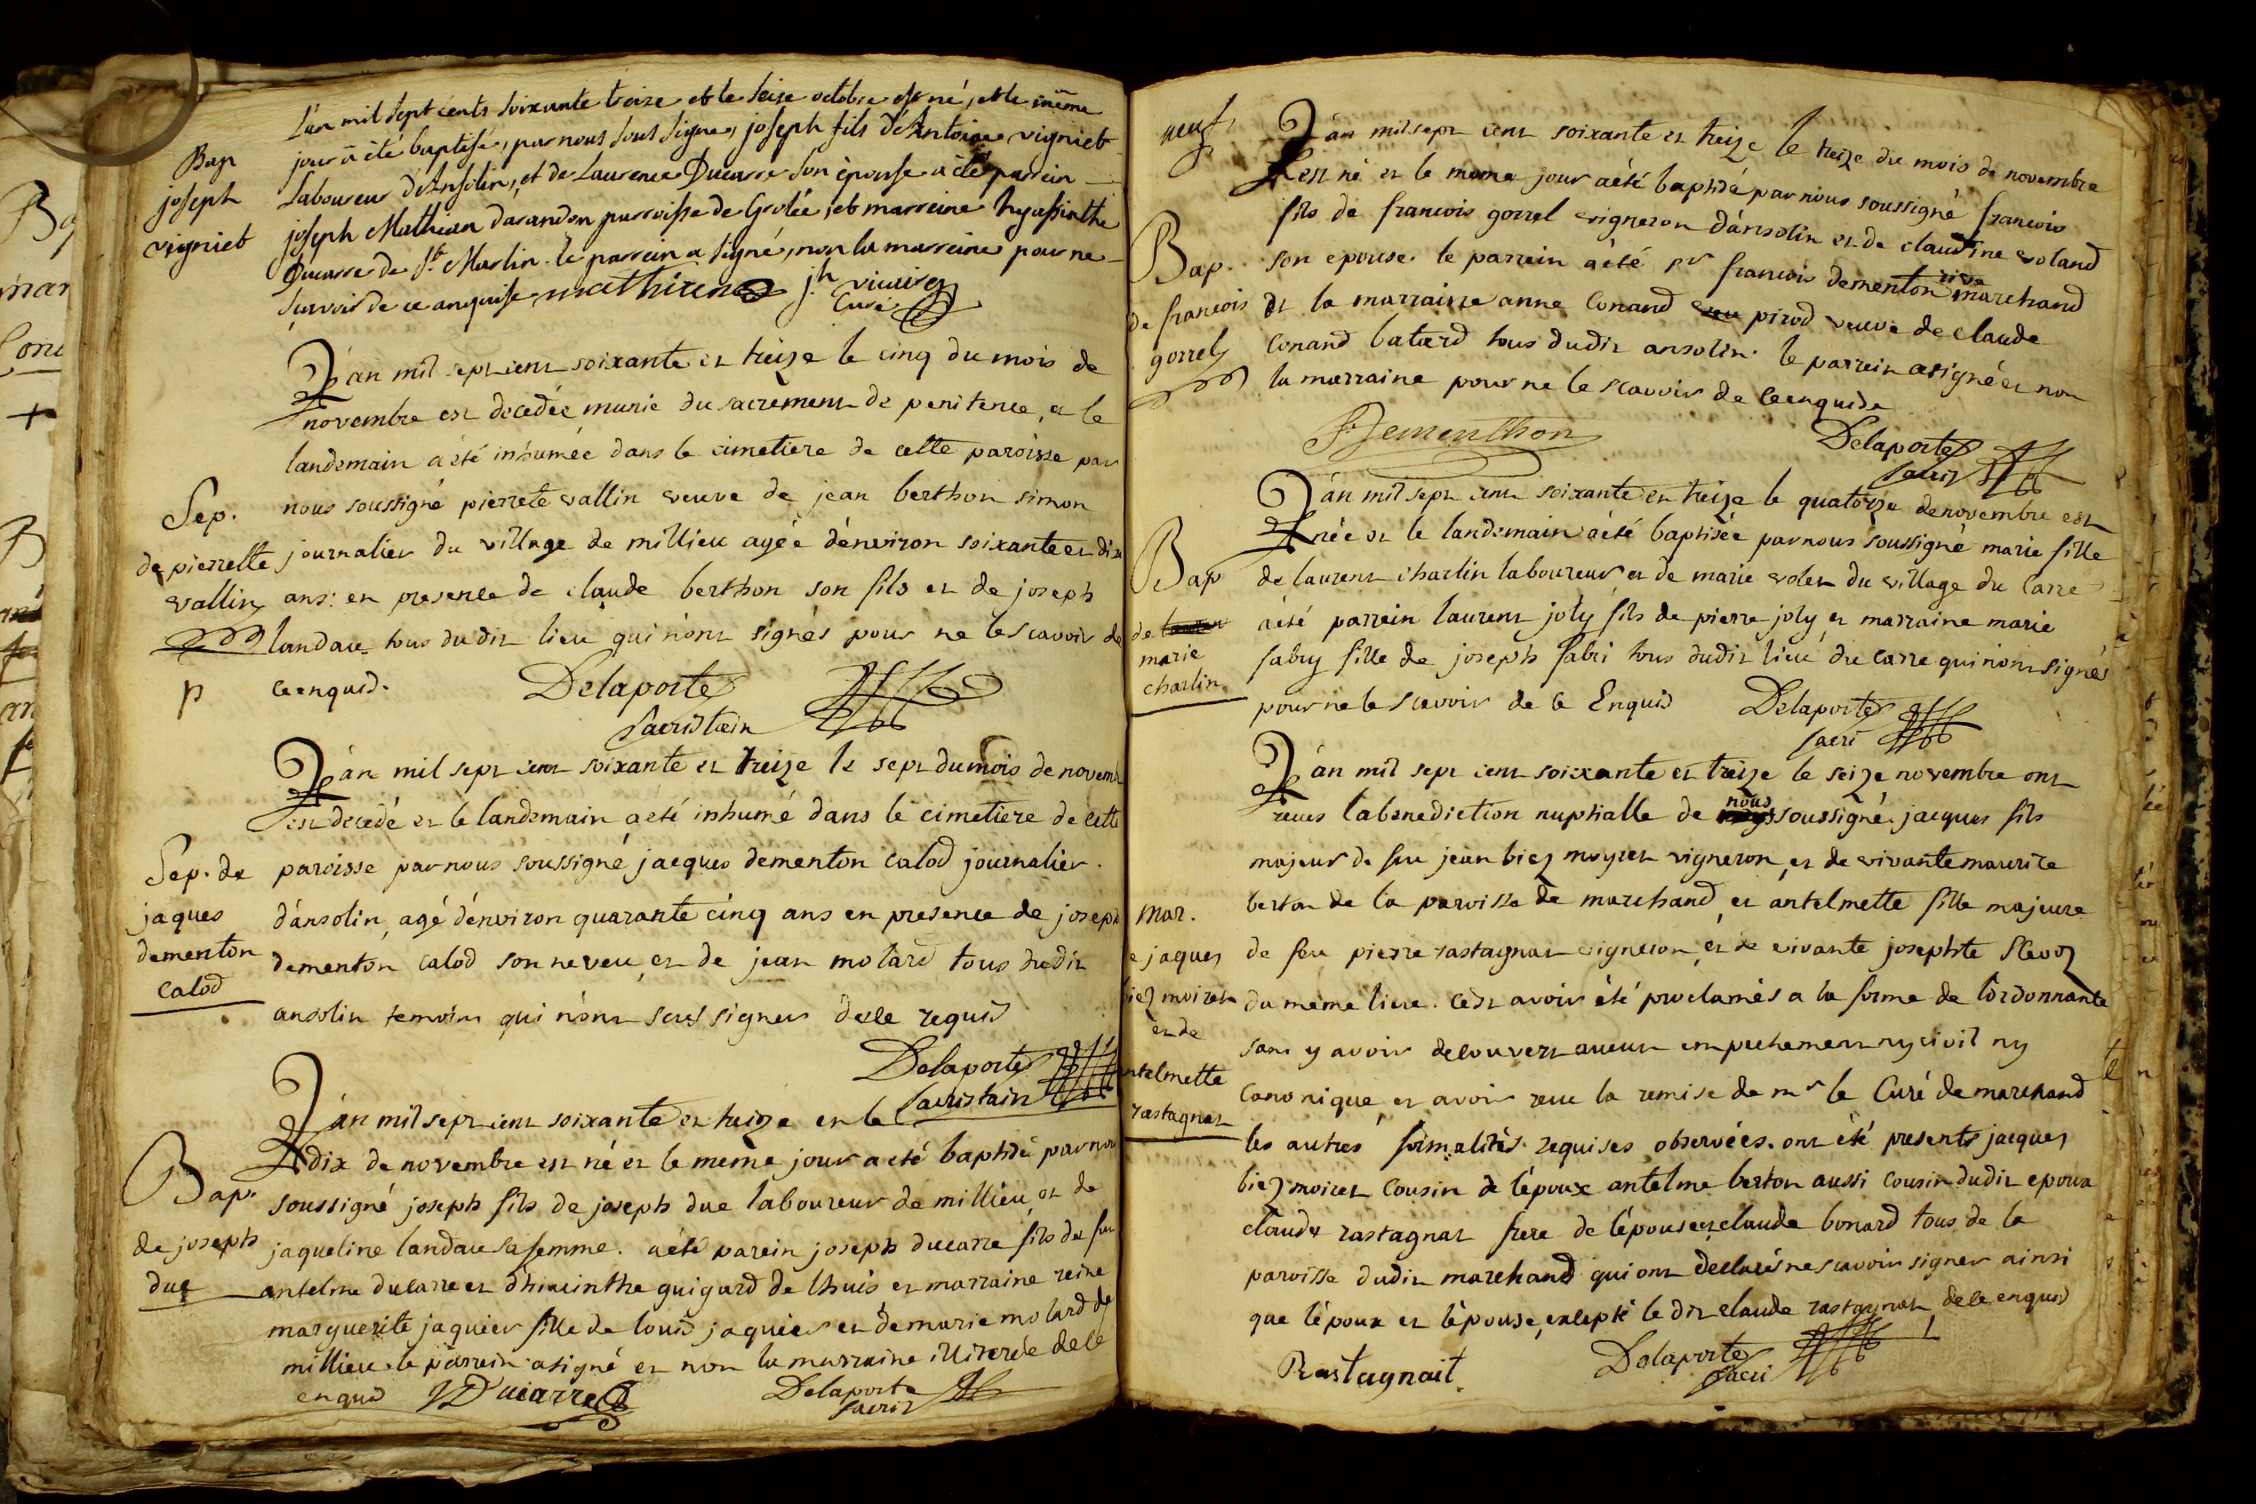 L'an mil sept cents soixante treize et le seize octobre est né, et le même
Bap jour a été baptisé, par nous sous signé, joseph fils d'Antoine vigniet
joseph Laboureur d'Ansolin, et de Laurence Ducarre son épouse a été parrein
vigniet joseph Mathieu darandon parroisse de Grolée, et marreine hyassinthe
Ducarre de St. Martin. le parrein a signé, non la marreine pour ne
sçavoir de ce anquise mathieu jh vicaire
Curé
L'an mil sept cent soixante et treize le cinq du mois de
novembre est decedée munie du sacrement de penitence, et le
landemain a été inhumée dans le cimetiere de cette paroisse par
Sep. nous soussigné pierrete vallin veuve de jean berthon simon
de pierrette journalier du village de millieu agée d'environ soixante et dix
vallin ans: en presence de claude berthon son fils et de joseph
landau tous dudit lieu qui n'ont signés pour ne le scavoir de
p ce enquis. Delaporte
sacristain
L'an mil sept cent soixante et treize le sept du mois de novemb
est decedé et le landemain a été inhumé dans le cimetiere de cette
Sep. de paroisse par nous soussigné jacques dementon calod journalier
jaques d'ansolin, agé d'environ quarante cinq ans en presence de joseph
dementon dementon calod son neveu et de jean molard tous dudit
calod
ansolin temoins qui n'ont sceu signer de ce requis
Delaporte
sacristain
L'an mil sept cent soixante et treize et le
dix de novembre est né et le meme jour a eté baptisé par nous
Bap. soussigné joseph fils de joseph duc laboureur de millieu, et de
de joseph jaqueline landau sa femme. a été parein joseph ducarre fils de feu
duc antelme ducarre et d'hiacinthe guigard de lhuis et marraine reine
marguerite jaquier fille de louis jaquier et de marie molard de
millieu. le parrein a signé et non la marraine illiterée de ce
enquis JDucarre Delaporte
sacris
neuf L'an mil sept cent soixante et treize le treize du mois de novembre
est né et le meme jour a été baptisé par nous soussigné francois
fils de francois gorrel vigneron d'ansolin et de claudine voland
Bap. son epouse. le parrein a été sr francois dementon rive marchand
de francois et la marraine anne Conand veu pirod veuve de claude
gorrel Conand batard tous dudit ansolin. le parrein a signé et non
la marraine pour ne le scavoir de ce enquise
Dementhon Delaporte
sacris
L'an mil sept cent soixante et treize le quatorze de novembre est
née et le landemain a été baptisée par nous soussigné marie fille
Bap de laurent charlin laboureur et de marie volet du village du Carre
de a été parrein laurent joly fils de pierre joly et marraine marie
marie fabry fille de joseph fabri tous dudit lieu du carre qui n'ont signés
charlin pour ne le scavoir de ce Enquis Delaporte
sacri
L'an mil sept cent soixante et treize le seize novembre ont
receus la benediction nuptialle de nous soussigné. jacques fils
majeur de feu jean biez moyret vigneron, et de vivante maurize
Mar. berton de la paroisse de marchand, et antelmette fille majeure
e jaques de feu pierre rastagnat vigneron, et de vivante josephte
iez moiret du meme lieu. cest avoir été proclamés a la forme de l'ordonnance
et de sans y avoir decouvert aucun empechement ny civil ny
ntelmette Canonique, et avoir receu la remise de mr le Curé de marchand
rastagnat les autres formalités requises observées. ont été presents jacques
biez moiret Cousin de l'époux antelme berton aussi Cousin dudit epoux
claude rastagnat frere de l'épouse et claude bonard tous de la
paroisse dudit marchand qui ont declarés ne scavoir signer ainsi
que l'époux et l'épouse, excepté le dit claude rastagnat, de ce enquis
Rastagnait Delaporte
sacri